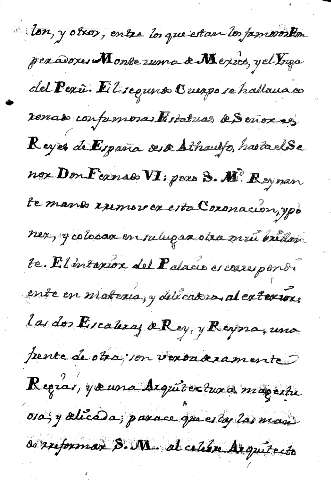 lon, y otros, entre los que estan los famosos Em
peradores Montezuma de Mexico, y el Ynga
del Perù. El segundo Cuerpo se hallava co
ronado con famosas Estatuas de Señores
Reyes de España desde Athaulfo, hasta el Se
ñor Don Fernando VI: pero S. M.d Reynan
te mando remover esta Coronacion, y po
ner, y colocar en su lugar otra mui brillan
te. El interior del Palacio es correspondi
ente en materia, y delicateza al exterior:
las dos Escaleras de Rey, y Reyna, una
frente de otra, son verdaderamente
Regias, y de una Arquitectura magestu
osa, y delicada; parece que estas las man
do reformar S. M. al celebre Arquitecto